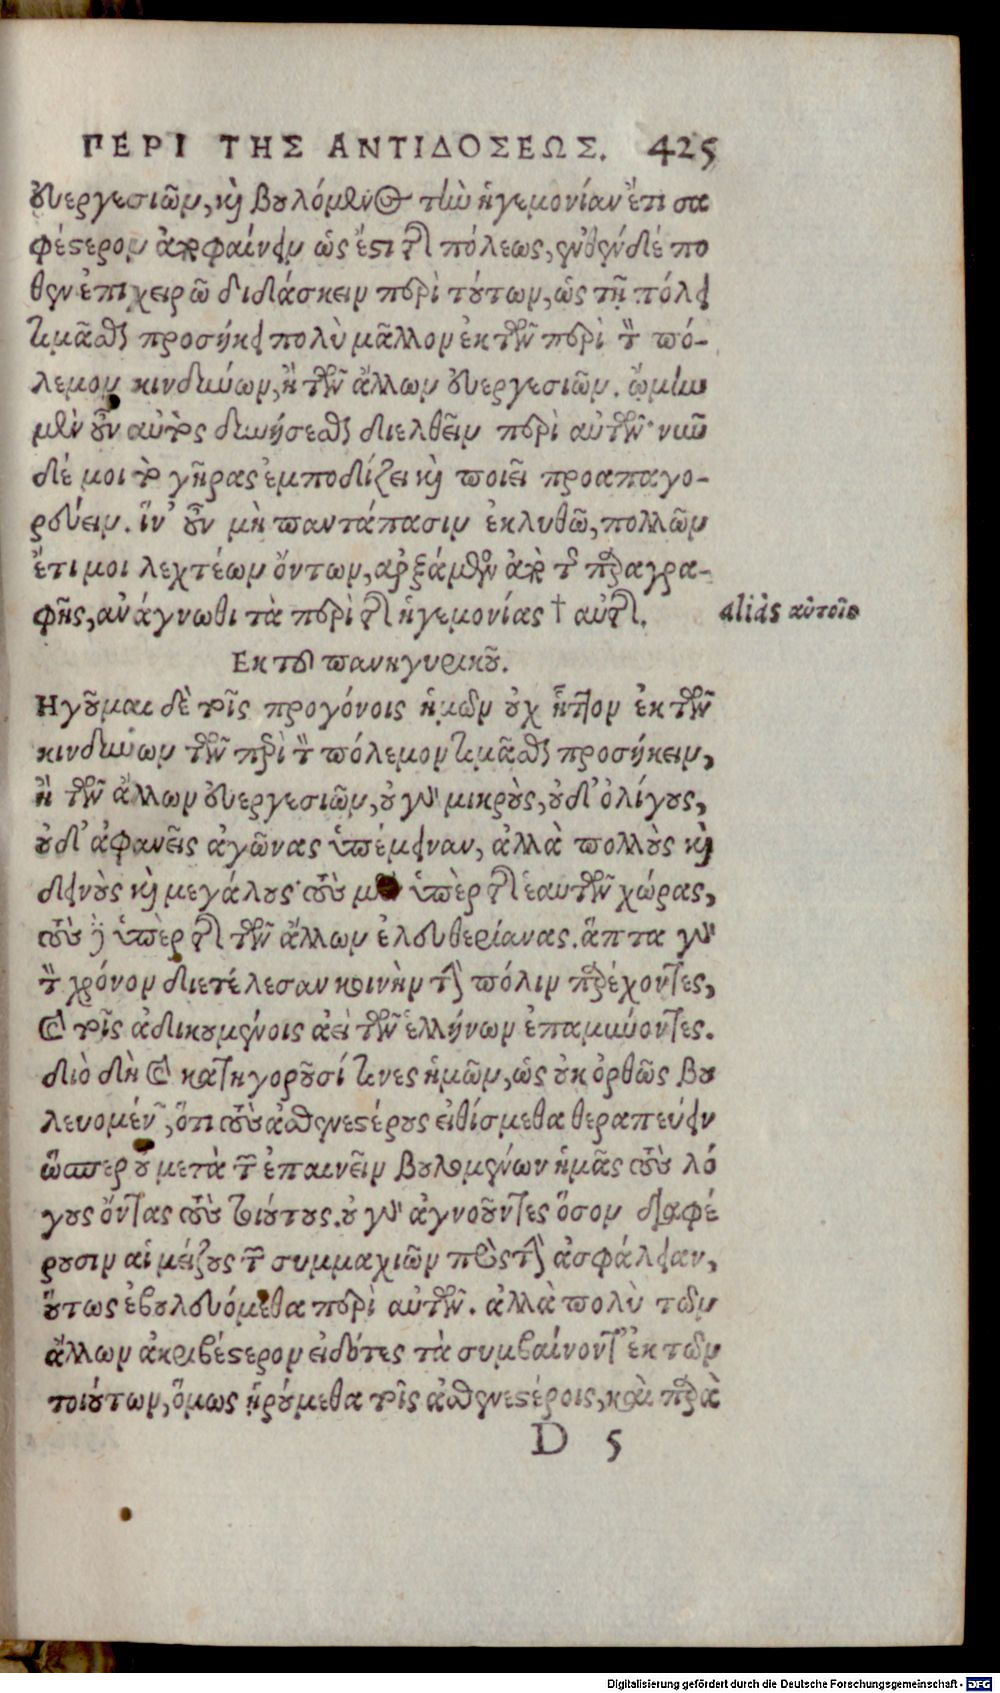 ΠΕΡΙ ΤΗΣ ΑΝΤΙΔΟΣΕΩΣ. 425
εὐεργεσιῶν, καὶ βουλόμενος τὴν ἡγεμονίαν ἔτι σα
φέστερον ἀποφαίνειν ὡς ἔστι τῆς πόλεως, ἐνθένδέ πο
θεν ἐπιχειρῶ διδάσκειν περὶ τούτων, ὡς τῇ πόλει
τιμᾶσθαι προσήκει πολὺ μᾶλλον ἐκ τῶν περὶ τὸν πό-
λεμον κινδύνων, ἢ τῶν ἄλλων εὐεργεσιῶν. ᾤμην
μὲν οὖν αὐτὸς δυνήσεσθαι διελθεῖν περὶ αὐτῶν· νῦν
δέ μοι τὸ γῆρας ἐμποδίζει καὶ ποιεῖ προαπαγο-
ρεύειν. ἵν' οὖν μὴ παντάπασιν ἐκλυθῶ, πολλῶν
ἔτι μοι λεχτέων ὄντων, ἀρξάμενος ἀπὸ τῆς παραγρα-
φῆς, ἀνάγνωθι τὰ περὶ τῆς ἡγεμονίας † αὐτῆς.
aliàs αὐτοῖς
Εκ τοῦ πανηγυρικοῦ.
Ηγοῦμαι δὲ τοῖς προγόνοις ἡμῶν οὐχ ἧττον ἐκ τῶν
κινδύνων τῶν περὶ τὸν πόλεμον τιμᾶσθαι προσήκειν,
ἢ τῶν ἄλλων εὐεργεσιῶν, οὐ γὰρ μικροὺς, οὐδ' ὀλίγους,
οὐδ' ἀφανεῖς ἀγῶνας ὑπέμειναν, ἀλλὰ πολλοὺς καὶ
δεινοὺς καὶ μεγάλους· τοὺς μὲν ὑπὲρ τῆς ἑαυτῶν χώρας,
τοὺς δὲ ὑπὲρ τῆς τῶν ἄλλων ἐλευθερίανας. ἅπτα γὰρ
τὸν χρόνον διετέλεσαν κοινὴν τὴν πόλιν παρέχοντες,
καὶ τοῖς ἀδικουμένοις ἀεὶ τῶν ἑλλήνων ἐπαμμύοντες.
διὸ δὴ καὶ κατηγοροῦσί τινες ἡμῶν, ὡς οὐκ ὀρθῶς βου
λευομένων, ὅτι τοὺς ἀσθενεστέρους εἰθίσμεθα θεραπεύειν
ὥσπερ οὐ μετὰ τῶν ἐπαινεῖν βουλομένων ἡμᾶς τοὺς λό
γους ὄντας τοὺς τοιούτους. οὐ γὰρ ἀγνοοῦντες ὅσον διαφέ
ρουσιν αἱ μείζους τῶν συμμαχιῶν πρὸς τὴν ἀσφάλειαν,
οὕτως ἐβουλευόμεθα περὶ αὐτῶν. ἀλλὰ πολὺ τῶν
ἄλλων ἀκριβέστερον εἰδότες τὰ συμβαίνοντ' ἐκ τῶν
τοιούτων, ὅμως ᾑρούμεθα τοῖς ἀσθενεστέροις, καὶ παρὰ
D 5
Digitalisierung gefördert durch die Deutsche Forschungsgemeinschaft - DFG